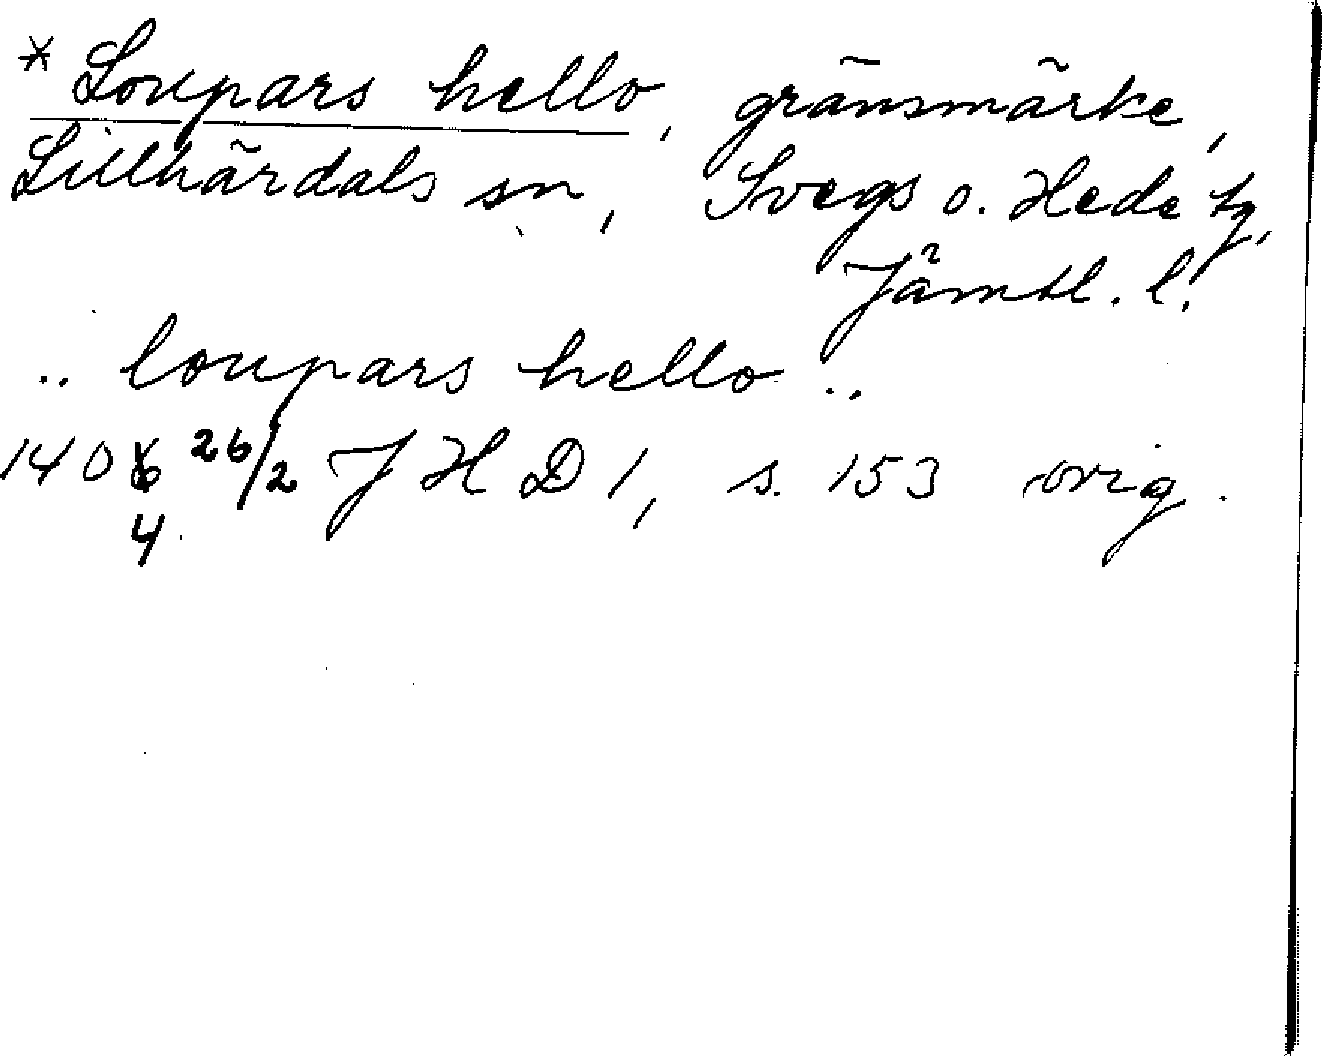 * Loupars hello, gränsmärke,
Lillhärdals sn, Svegs o. Hede tg,
Jämtl. l.
.. loupars hello ..
1406 26/2 JHD 1, s. 153 orig.
4